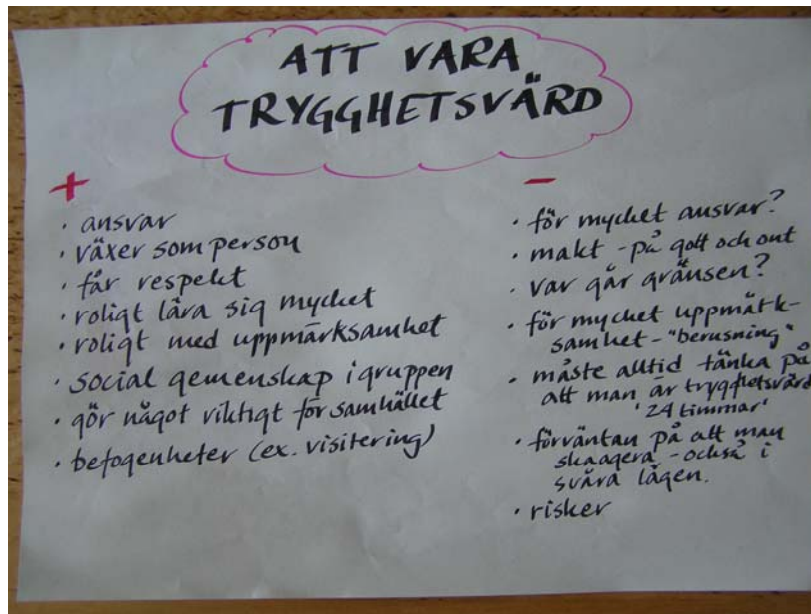 ATT VARA
TRYGGHETSVÄRD
+
· ansvar
· växer som person
· får respekt
· roligt lära sig mycket
· roligt med uppmärksamhet
· social gemenskap i gruppen
· gör något viktigt för samhället
· befogenheter (ex. visitering)
-
· för mycket ansvar?
· makt - på gott och ont
· var går gränsen?
· för mycket uppmärk-
samhet - "berusning"
· måste alltid tänka på
att man är trygghetsvärd
'24 timmar'
· förväntan på att man
ska agera - också i
svåra lägen.
· risker